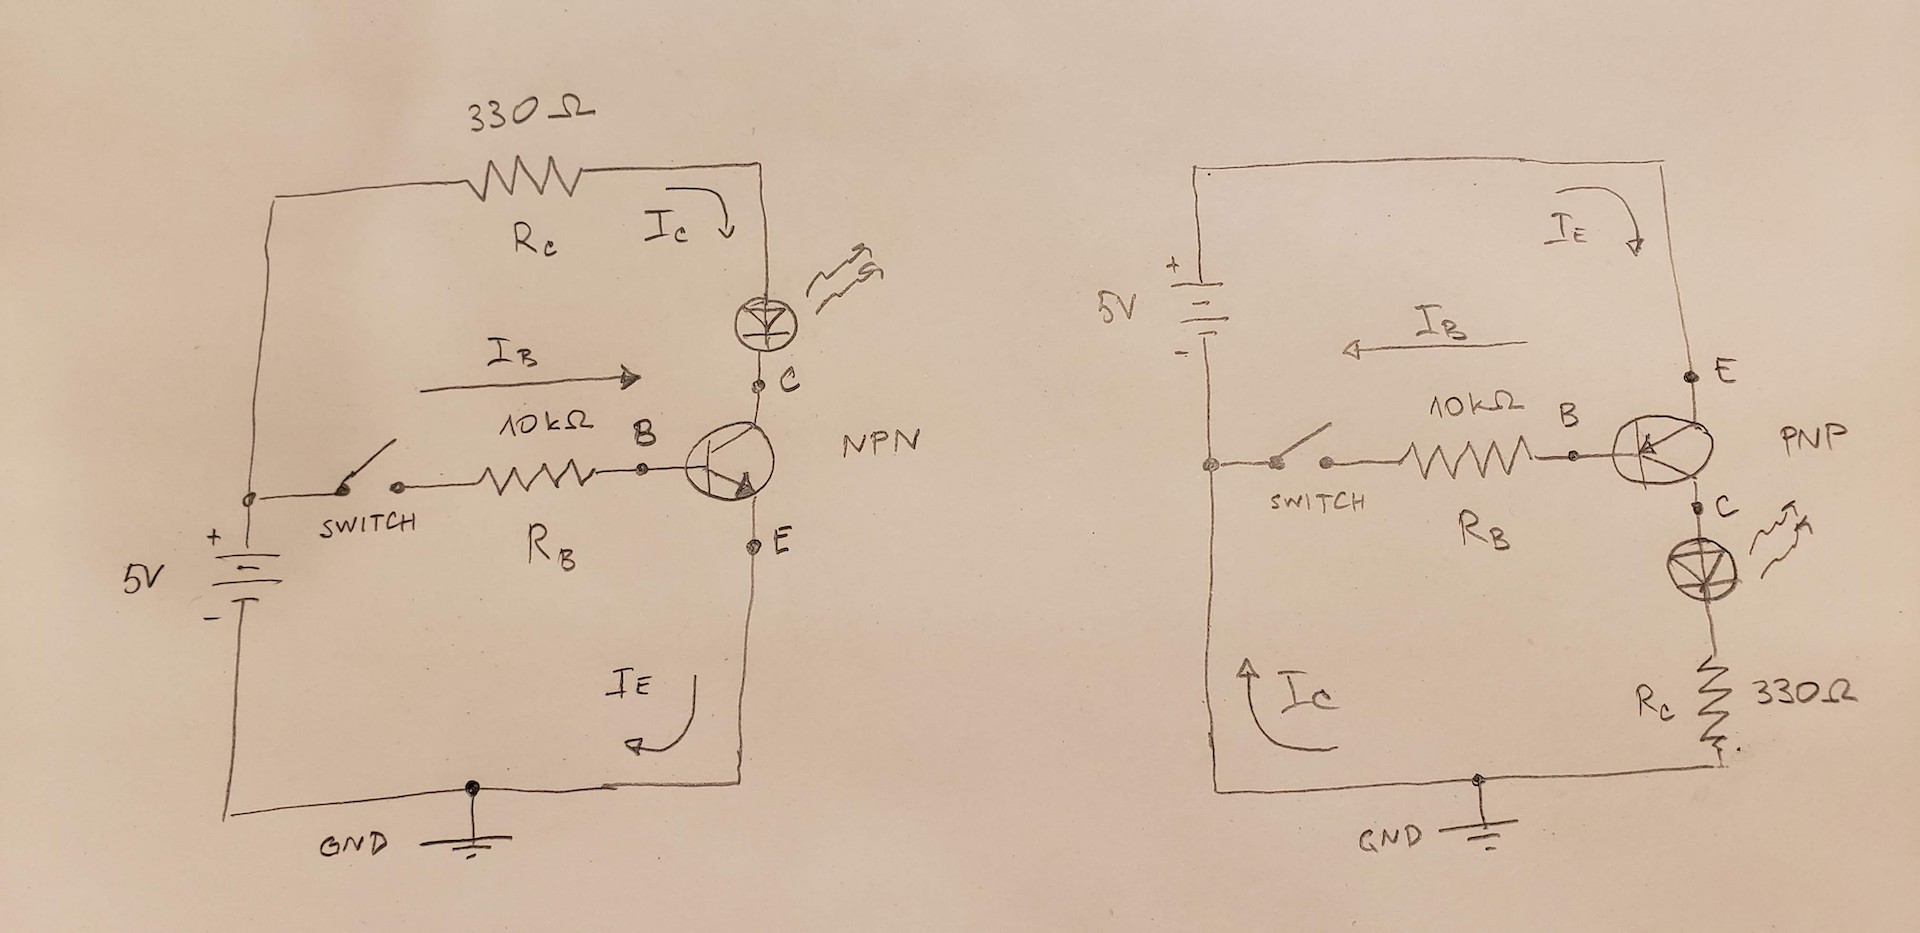 330Ω
R_C
I_C
I_B
C
10kΩ
B
NPN
SWITCH
R_B
E
+
5V
-
I_E
GND
I_E
+
5V
-
I_B
E
10kΩ
B
PNP
SWITCH
R_B
C
R_C
330Ω
I_C
GND